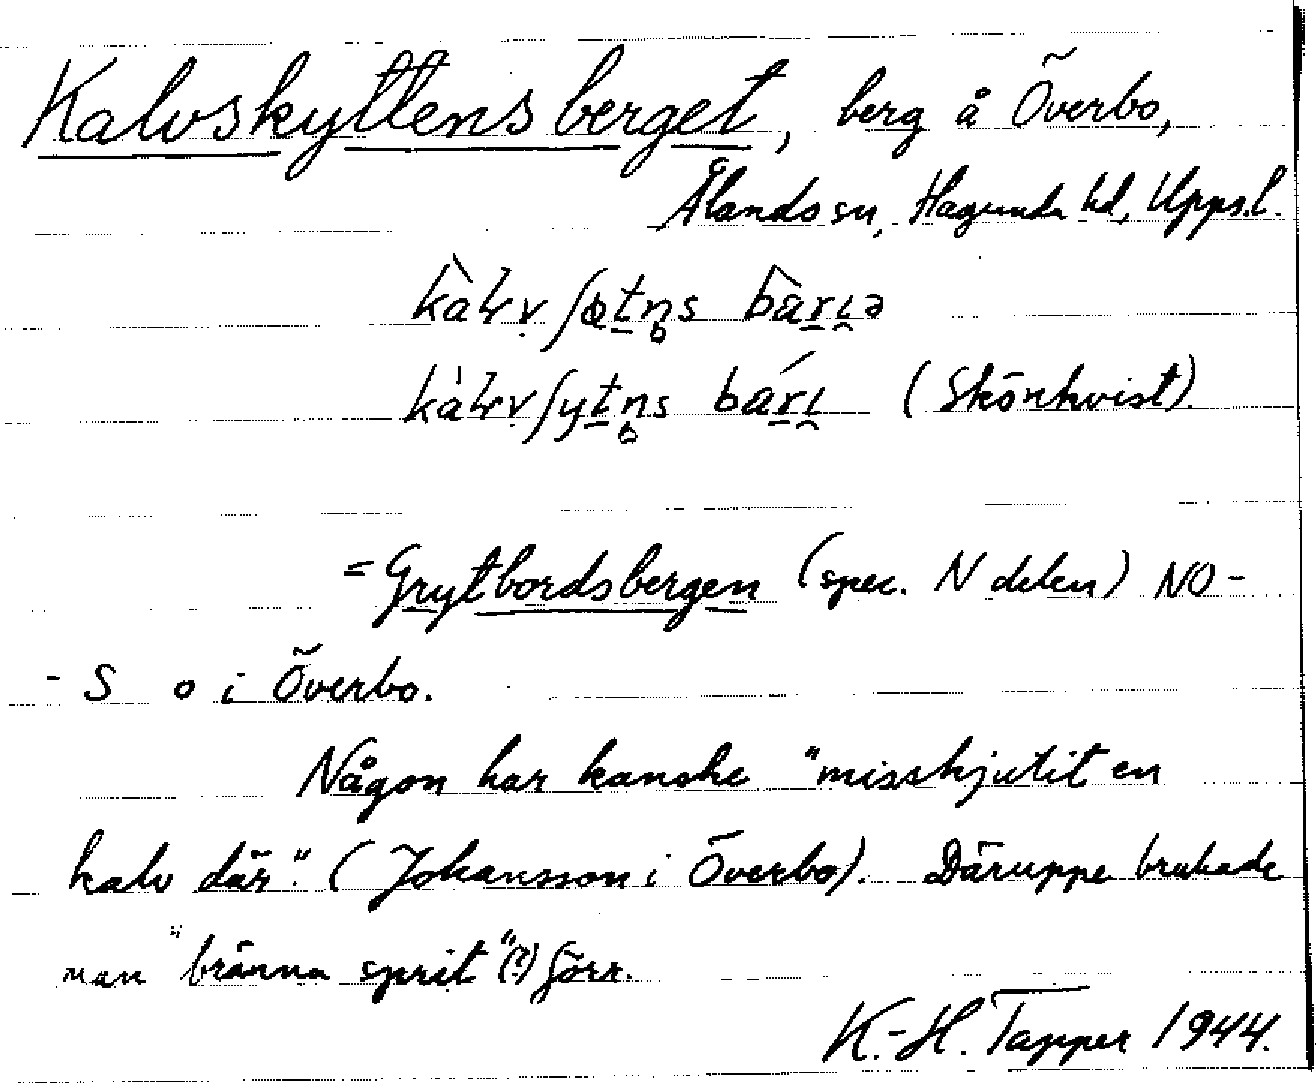 Kalvskyttensberget, berg å Överbo,
Ålands sn, Hagunda hd, Upps.l.
(Skönkvist).
= Grytbordsbergen (spec. N delen) NO-
- S o i Överbo.
Någon har kanske "misskjutit en
kalv där". (Johansson i Överbo). Däruppe brukade
man "bränna sprit"(?) förr.
K.-H. Tapper 1944.